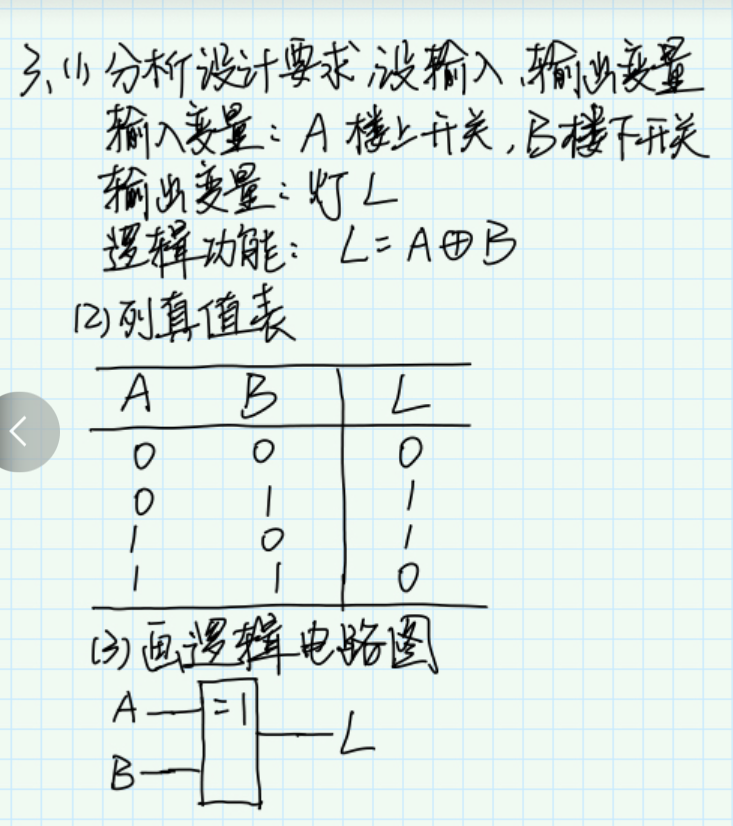 3、(1) 分析设计要求,设输入、输出变量
输入变量：A 楼上开关，B楼下开关
输出变量：灯L
逻辑功能： L=A⊕B
(2)列真值表
A B L
0 0 0
0 1 1
1 0 1
1 1 0
(3)画逻辑电路图
A =1
L
B